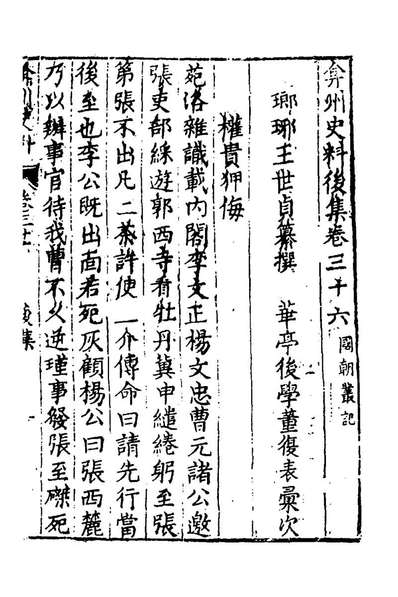 弇州史料後集卷三十六 國朝叢記
瑯琊王世貞纂撰 華亭後學董復表彙次
權貴狎侮
苑洛雜識載內閣李文正楊文忠曹元諸公邀
張吏部綵遊郭西寺看牡丹冀申繾綣躬至張
第張不出凡二茶許使一介傳命曰請先行當
後至也李公既出面若死灰顧楊公曰張西麓
乃以辦事官待我曹不久逆瑾事發張至磔死
弇州史料 卷三十六 後集 一